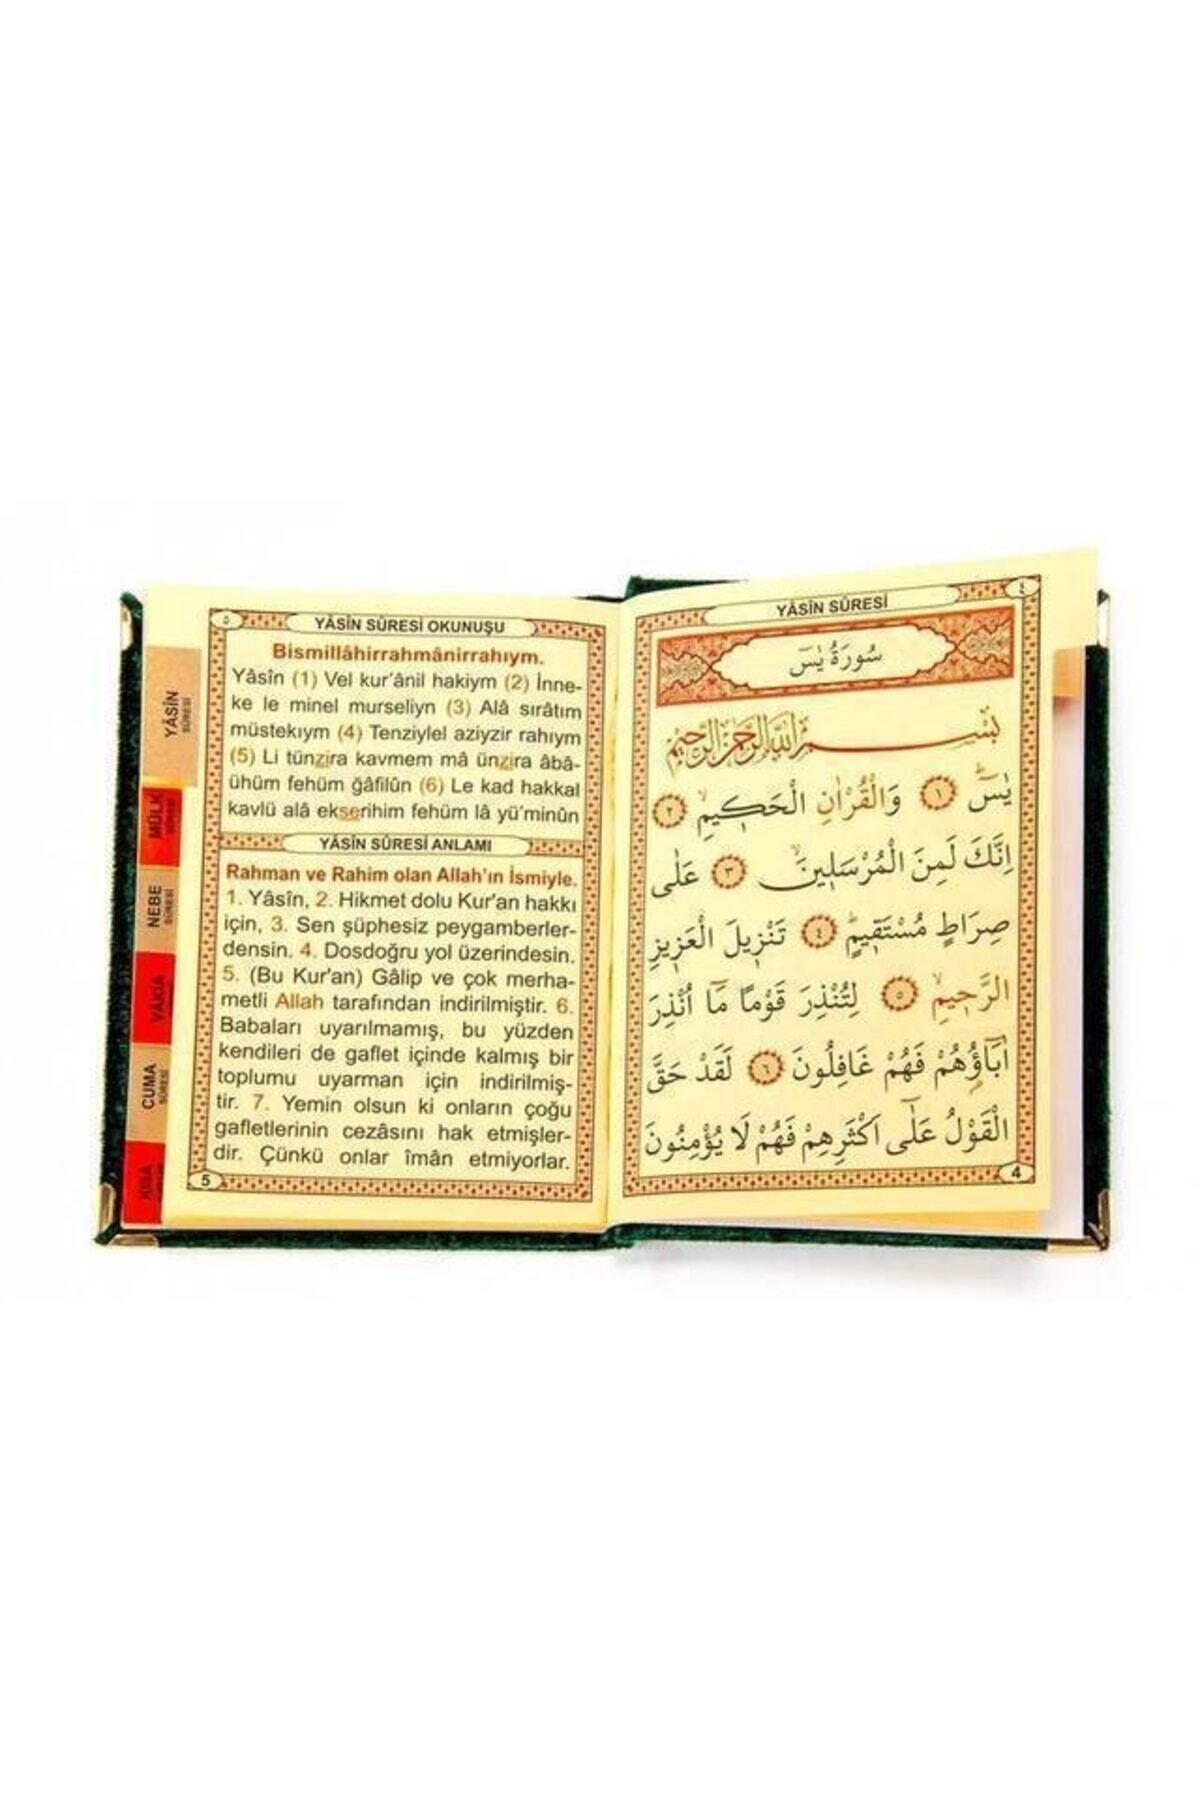 ٥
YÂSİN SÛRESİ OKUNUŞU
Bismillâhirrahmânirrahıym.
Yâsîn (1) Vel kur’ânil hakiym (2) İnne-
ke le minel murseliyn (3) Alâ sırâtım
müstekıym (4) Tenziylel aziyzir rahıym
(5) Li tünzira kavmem mâ ünzira âbâ-
ühüm fehüm ğâfilûn (6) Le kad hakkal
kavlü alâ ekserihim fehüm lâ yü’minûn
YÂSİN SÛRESİ ANLAMI
Rahman ve Rahim olan Allah’ın İsmiyle.
1. Yâsîn, 2. Hikmet dolu Kur'an hakkı
için, 3. Sen şüphesiz peygamberler-
densin. 4. Dosdoğru yol üzerindesin.
5. (Bu Kur'an) Gâlip ve çok merha-
metli Allah tarafından indirilmiştir. 6.
Babaları uyarılmamış, bu yüzden
kendileri de gaflet içinde kalmış bir
toplumu uyarman için indirilmiş-
tir. 7. Yemin olsun ki onların çoğu
gafletlerinin cezâsını hak etmişler-
dir. Çünkü onlar îmân etmiyorlar.
5
YÂSİN
SÛRESİ
MÜLK
SÛRESİ
NEBE
SÛRESİ
VAKIA
CUMA
SÛRESİ
KISA
٤
YÂSİN SÛRESİ
سُورَةُ يٰسٓ
بِسْمِ اللّٰهِ الرَّحْمٰنِ الرَّحِيمِ
يٰسٓۜ ﴿١﴾ وَالْقُرْاٰنِ الْحَكِيمِۙ ﴿٢﴾
اِنَّكَ لَمِنَ الْمُرْسَلِينَۙ ﴿٣﴾ عَلٰى
صِرَاطٍ مُسْتَقِيمٍۜ ﴿٤﴾ تَنْزِيلَ الْعَزِيزِ
الرَّحِيمِۙ ﴿٥﴾ لِتُنْذِرَ قَوْمًا مَٓا اُنْذِرَ
اٰبَٓاؤُ۬هُمْ فَهُمْ غَافِلُونَ ﴿٦﴾ لَقَدْ حَقَّ
الْقَوْلُ عَلٰٓى اَكْثَرِهِمْ فَهُمْ لَا يُؤْمِنُونَ
4